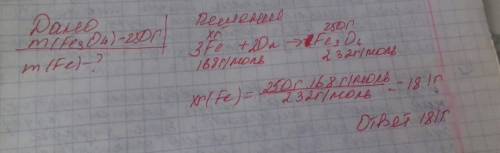 Дано
m(Fe₃O₄)-250г
m(Fe)-?
Решение
xг 250г
3Fe + 2O₂ → Fe₃O₄
168г/моль 232г/моль
xг(Fe) = 250г 168г/моль / 232г/моль = 181г
Ответ 181г